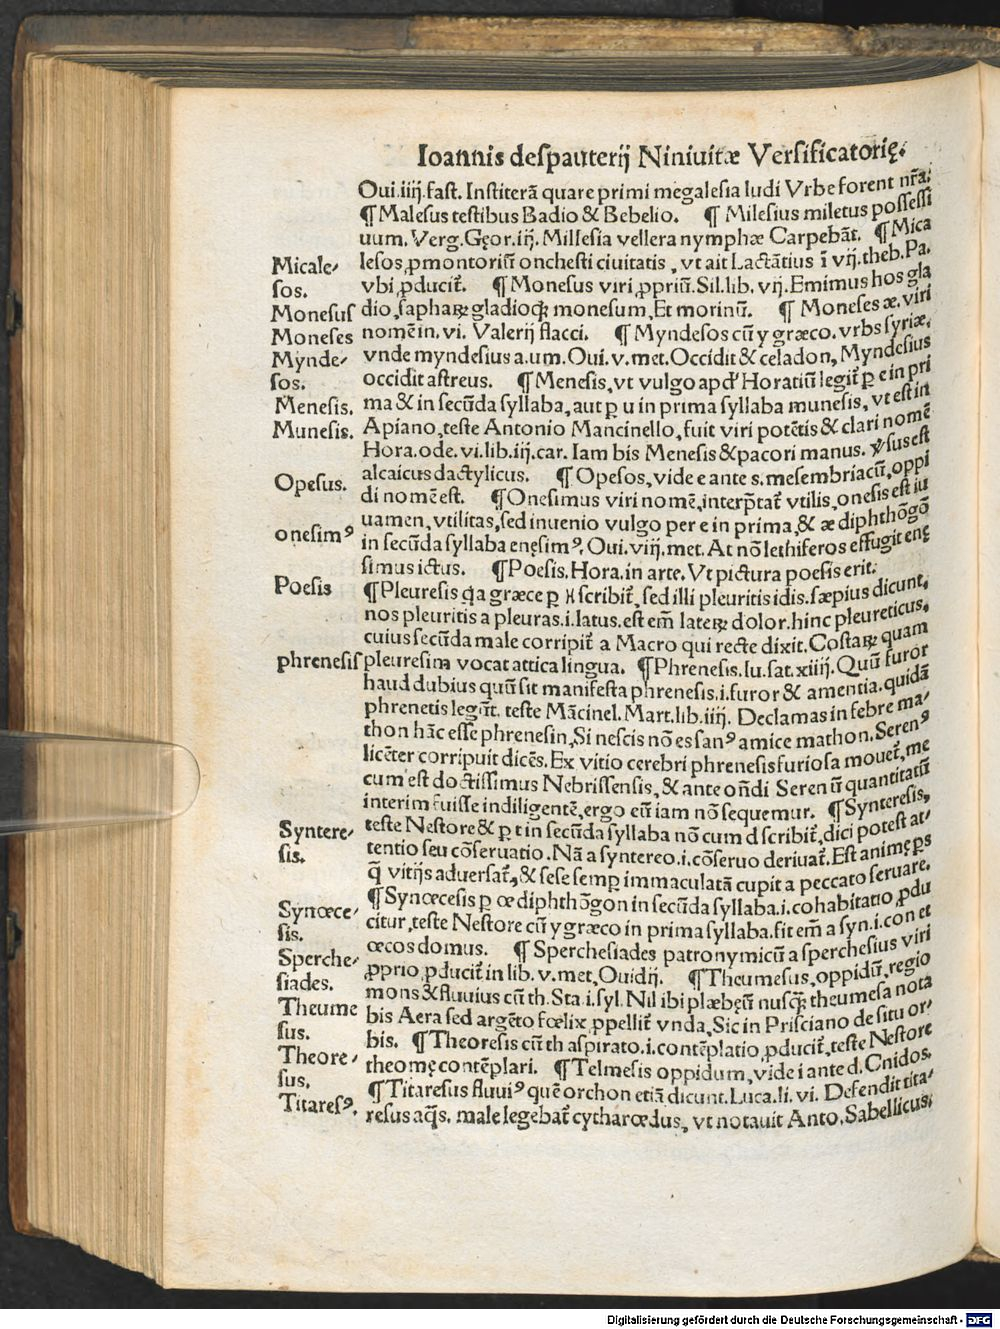 Ioannis despauterij Niniuitæ Versificatorię.
Oui. iiij. fast. Institerã quare primi megalesia ludi Vrbe forent nr̃a.
¶ Malesus testibus Badio & Bebelio. ¶ Milesius miletus possessi
uum. Verg. Gęor. iij. Millesia vellera nymphæ Carpebãt. ¶ Mica
Micale-
sos.
lesos, ꝓmontoriũ onchesti ciuitatis, vt ait Lactãtius ĩ vij. theb. Pa.
vbi, ꝓducit̃. ¶ Monesus viri, ꝓpriũ. Sil. lib. vij. Emimus hos gla
Monesus
dio, sapharꝫ gladioqꝫ monesum, Et morinũ. ¶ Moneses æ. viri
Moneses
nomẽ in. vi. Valerij flacci. ¶ Myndesos cũ y græco. vrbs syriæ,
Mynde-
sos.
vnde myndesius a. um. Oui. v. met. Occidit & celadon, Myndesius
occidit astreus. ¶ Menesis, vt vulgo apd' Horatiũ legit̃ ꝑ e in pri
Menesis.
ma & in secũda syllaba, aut ꝑ u in prima syllaba munesis, vt est in
Munesis.
Apiano, teste Antonio Mancinello, fuit viri potẽtis & clari nomẽ
Hora. ode. vi. lib. iij. car. Iam bis Menesis & pacori manus. ꝟsus est
alcaicus dactylicus. ¶ Opesos, vide e ante s. mesembriacũ, oppi
Opesus.
di nomẽ est. ¶ Onesimus viri nomẽ, interp̃tat̃ vtilis, onesis est iu
uamen, vtilitas, sed inuenio vulgo per e in prima, & æ diphthõgõ
onesimꝰ
in secũda syllaba enęsimꝰ. Oui. viij. met. At nõ lethiferos effugit enę
simus ictus. ¶ Poesis. Hora. in arte. Vt pictura poesis erit.
Poesis
¶ Pleuresis q̃a græce ꝑ scribit̃, sed illi pleuritis idis. sæpius dicunt,
nos pleuritis a pleuras. i. latus. est em̃ laterꝫ dolor. hinc pleureticus,
cuius secũda male corripit̃ a Macro qui recte dixit. Costarꝫ quam
phrenesis
pleuresim vocat attica lingua. ¶ Phrenesis. Iu. sat. xiiij. Quũ furor
haud dubius quũ sit manifesta phrenesis. i. furor & amentia. quidã
phrenetis legũt. teste Mãcinel. Mart. lib. iiij. Declamas in febre ma-
thon hãc esse phrenesin, Si nescis nõ es sanꝰ amice mathon. Serenꝰ
licẽter corripuit dicẽs. Ex vitio cerebri phrenesis furiosa mouet̃, me
cum est doctissimus Nebrissensis, & ante oñdi Serenũ quantitatũ
interim fuisse indiligentẽ, ergo eũ iam nõ sequemur. ¶ Synteresis,
Syntere-
sis.
teste Nestore & ꝑ t in secũda syllaba nõ cum d scribit̃, dici potest at-
tentio seu cõseruatio. Nã a syntereo. i. cõseruo deriuat̃. Est animę ps
q̃ vitijs aduersat̃, & sese semꝑ immaculatã cupit a peccato seruare.
¶ Synœcesis ꝑ œ diphthõgon in secũda syllaba. i. cohabitatio, ꝓdu
Synœce-
sis.
citur, teste Nestore cũ y græco in prima syllaba. fit em̃ a syn. i. con et
œcos domus. ¶ Sperchesiades patronymicũ a sperchesius viri
Sperche-
siades.
ꝓprio, ꝓducit̃ in lib. v. met. Ouidij. ¶ Theumesus, oppidũ, regio
mons & fluuius cũ th. Sta. i. syl. Nil ibi plæbęũ nusqꝫ theumesa nota
Theume
sus.
bis Aera sed argẽto fœlix, ꝓpellit̃ vnda, Sic in Prisciano de situ or-
bis. ¶ Theoresis cũ th aspirato. i. contẽplatio, ꝓducit̃, teste Nestore
Theore-
sus.
theomę contẽplari. ¶ Telmesis oppidum, vide i ante d. Cnidos.
¶ Titaresus fluuiꝰ quẽ orchon etiã dicunt. Luca. li. vi. Defendit tita-
Titaresꝰ.
resus aq̃s. male legebat̃ cytharœdus, vt notauit Anto. Sabellicus.
Digitalisierung gefördert durch die Deutsche Forschungsgemeinschaft - DFG